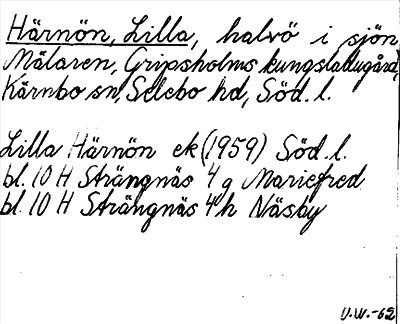 Härnön, Lilla, halvö i sjön
Mälaren, Gripsholms kungsladugård,
Kärnbo sn, Selebo hd, Söd. l.
Lilla Härnön ek (1959) Söd. l.
bl. 10 H Strängnäs 4 g Mariefred
bl. 10 H Strängnäs 4 h Näsby
U.W.-62